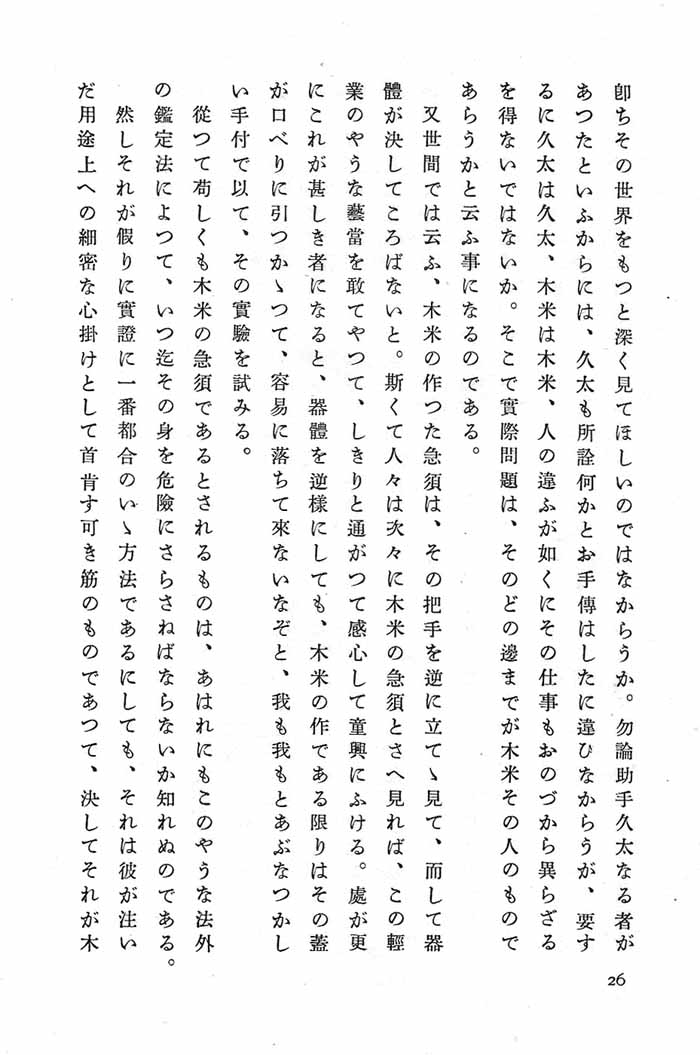 卽ちその世界をもつと深く見てほしいのではなからうか。勿論助手久太なる者が
あつたといふからには、久太も所詮何かとお手傳はしたに違ひなからうが、要す
るに久太は久太、木米は木米、人の違ふが如くにその仕事もおのづから異らざる
を得ないではないか。そこで實際問題は、そのどの邊までが木米その人のもので
あらうかと云ふ事になるのである。
又世間では云ふ、木米の作つた急須は、その把手を逆に立てゝ見て、而して器
體が決してころばないと。斯くて人々は次々に木米の急須とさへ見れば、この輕
業のやうな藝當を敢てやつて、しきりと通がつて感心して童興にふける。處が更
にこれが甚しき者になると、器體を逆樣にしても、木米の作である限りはその蓋
が口べりに引つかゝつて、容易に落ちて來ないなぞと、我も我もとあぶなつかし
い手付で以て、その實驗を試みる。
從つて苟しくも木米の急須であるとされるものは、あはれにもこのやうな法外
の鑑定法によつて、いつ迄その身を危險にさらさねばならないか知れぬのである。
然しそれが假りに實證に一番都合のいゝ方法であるにしても、それは彼が注い
だ用途上への細密な心掛けとして首肯す可き筋のものであつて、決してそれが木
26